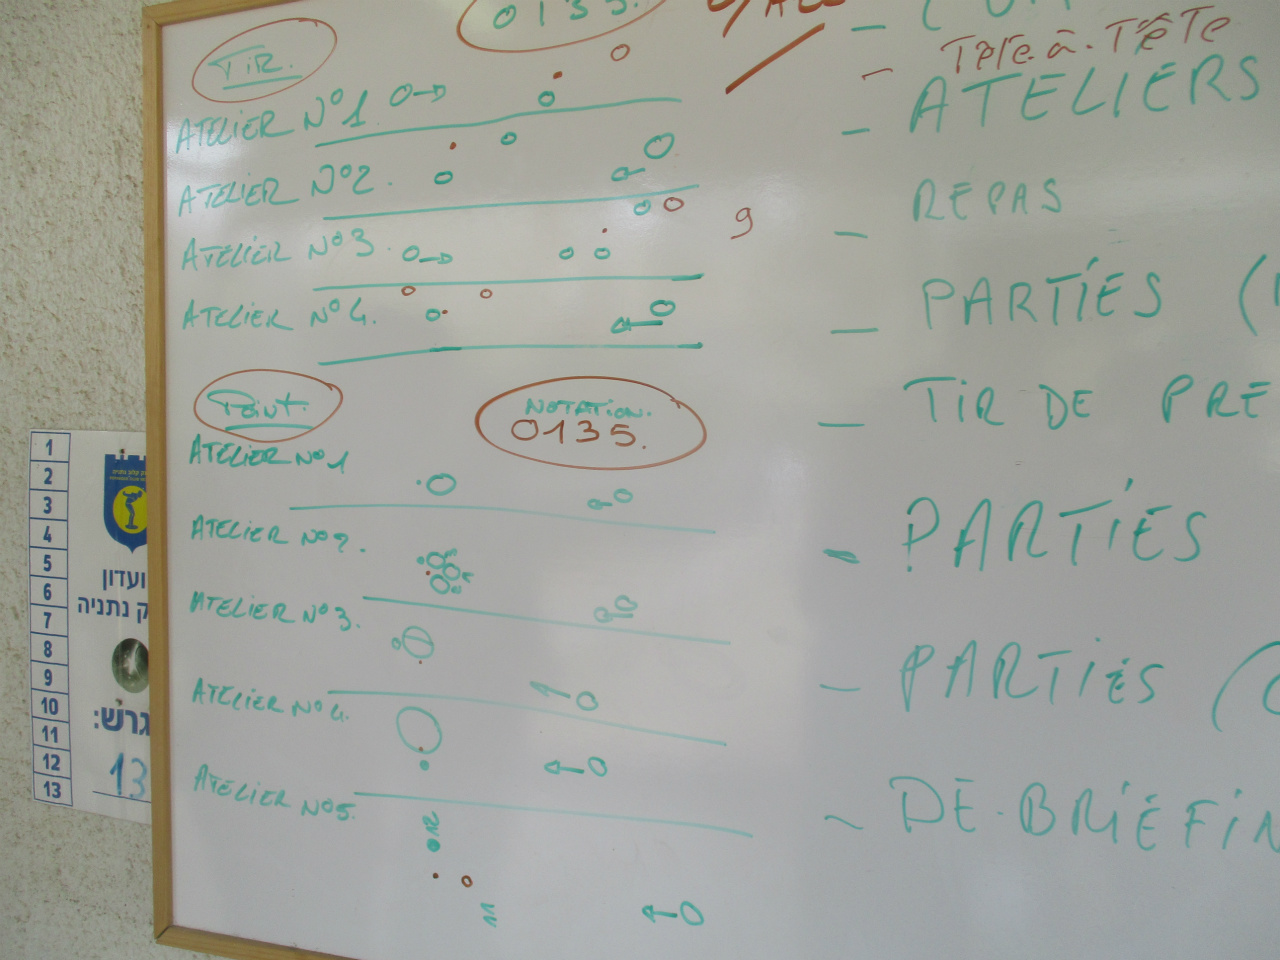 0135.
TiR.
ATELiER N°1
ATELiER N°2.
ATELiER N°3.
ATELiER N°4.
9
Point.
NOTATiON.
0135.
ATELiER N°1
ATELiER N°2.
ATELiER N°3.
ATELiER N°4.
ATELiER N°5.
11
- Tête-à-Tête
- ATELIERS
- REPAS
- PARTiES (
- TiR DE PRE
- PARTiES
- PARTiES (
- DE-BRiEFiN
1
2
3
4
5
6
7
8
9
10
11
12
13
ועדון
ק נתניה
גרש:
13